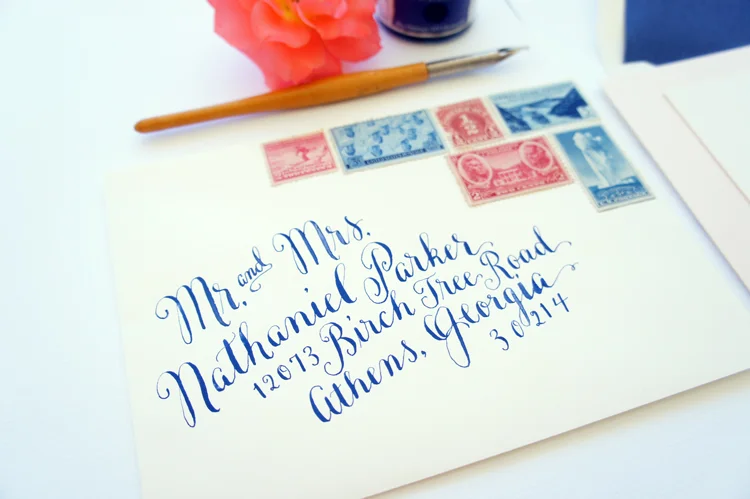 Mr. and Mrs.
Nathaniel Parker
12073 Birch Tree Road
Athens, Georgia
30214